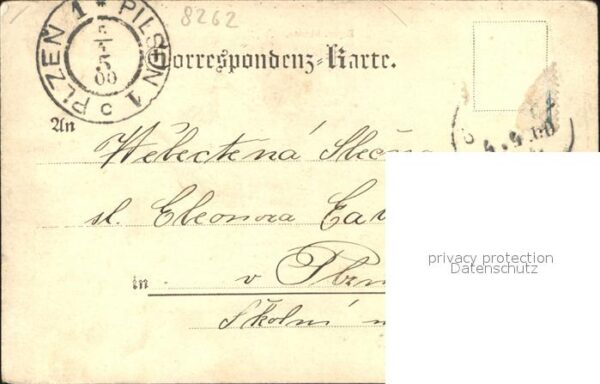 8262
PLZEŇ 1 * PILSEN 1
5/5 00
Correspondenz-Karte.
4.5.00
An
Velectená Slečna
sl. Eleonora
in v Plzni
Školní
privacy protection
Datenschutz